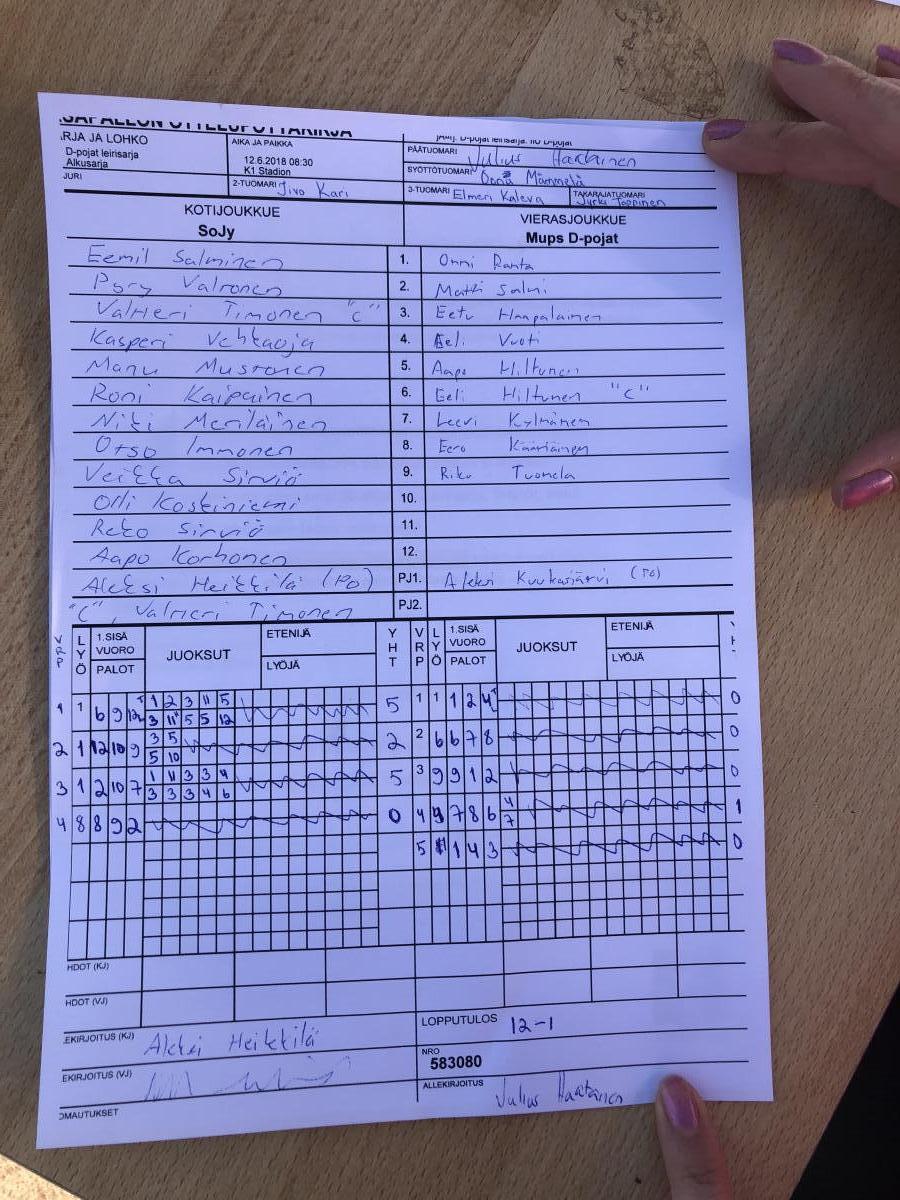 SARJA JA LOHKO
D-pojat leirisarja
Alkusarja
AIKA JA PAIKKA
12.6.2018 08:30
K1 Stadion
PÄÄTUOMARI Julius Haatainen
SYÖTTÖTUOMARI Onna Mämmelä
JURI
2-TUOMARI Jivo Kari
3-TUOMARI Elmeri Kaleva
TAKARAJATUOMARI Jyrki Toppinen
KOTIJOUKKUE VIERASJOUKKUE
SoJy Mups D-pojat
Eemil Salminen 1. Onni Ranta
Pory Valronen 2. Matti Salmi
Valtteri Timonen "C" 3. Eetu Haapalainen
Kasperi Vehkaoja 4. Eeli Vuoti
Manu Mustonen 5. Aapo Hiltunen
Roni Kaipainen 6. Eeli Hiltunen "C"
Niki Meriläinen 7. Leevi Kylmänen
Otso Immonen 8. Eero Kääriäinen
Veikka Sirviö 9. Riku Tuomela
Olli Koskiniemi 10.
Reko Sirviö 11.
Aapo Korhonen 12.
Aleksi Heikkilä (PO) PJ1. Aleksi Kuukasjärvi (PO)
"C", Valtteri Timonen PJ2.
VRP LYÖ 1.SISÄ VUORO PALOT JUOKSUT ETENIJÄ LYÖJÄ YHT VRP LYÖ 1.SISÄ VUORO PALOT JUOKSUT ETENIJÄ LYÖJÄ
1 1 6 9 12 1 2 3 11 5 5 1 1 1 2 4 0
3 11 5 5 12
2 1 12 10 9 3 5 2 2 6 6 7 8 0
5 10
3 1 2 10 7 1 11 3 3 4 5 3 9 9 1 2 0
3 3 3 4 6
4 8 8 9 2 0 4 9 7 8 6 4 1
7
5 1 1 4 3 0
HDOT (KJ)
HDOT (VJ)
EKIRJOITUS (KJ) Aleksi Heikkilä
LOPPUTULOS 12-1
EKIRJOITUS (VJ)
NRO
583080
OMAUTUKSET
ALLEKIRJOITUS Julius Haatainen